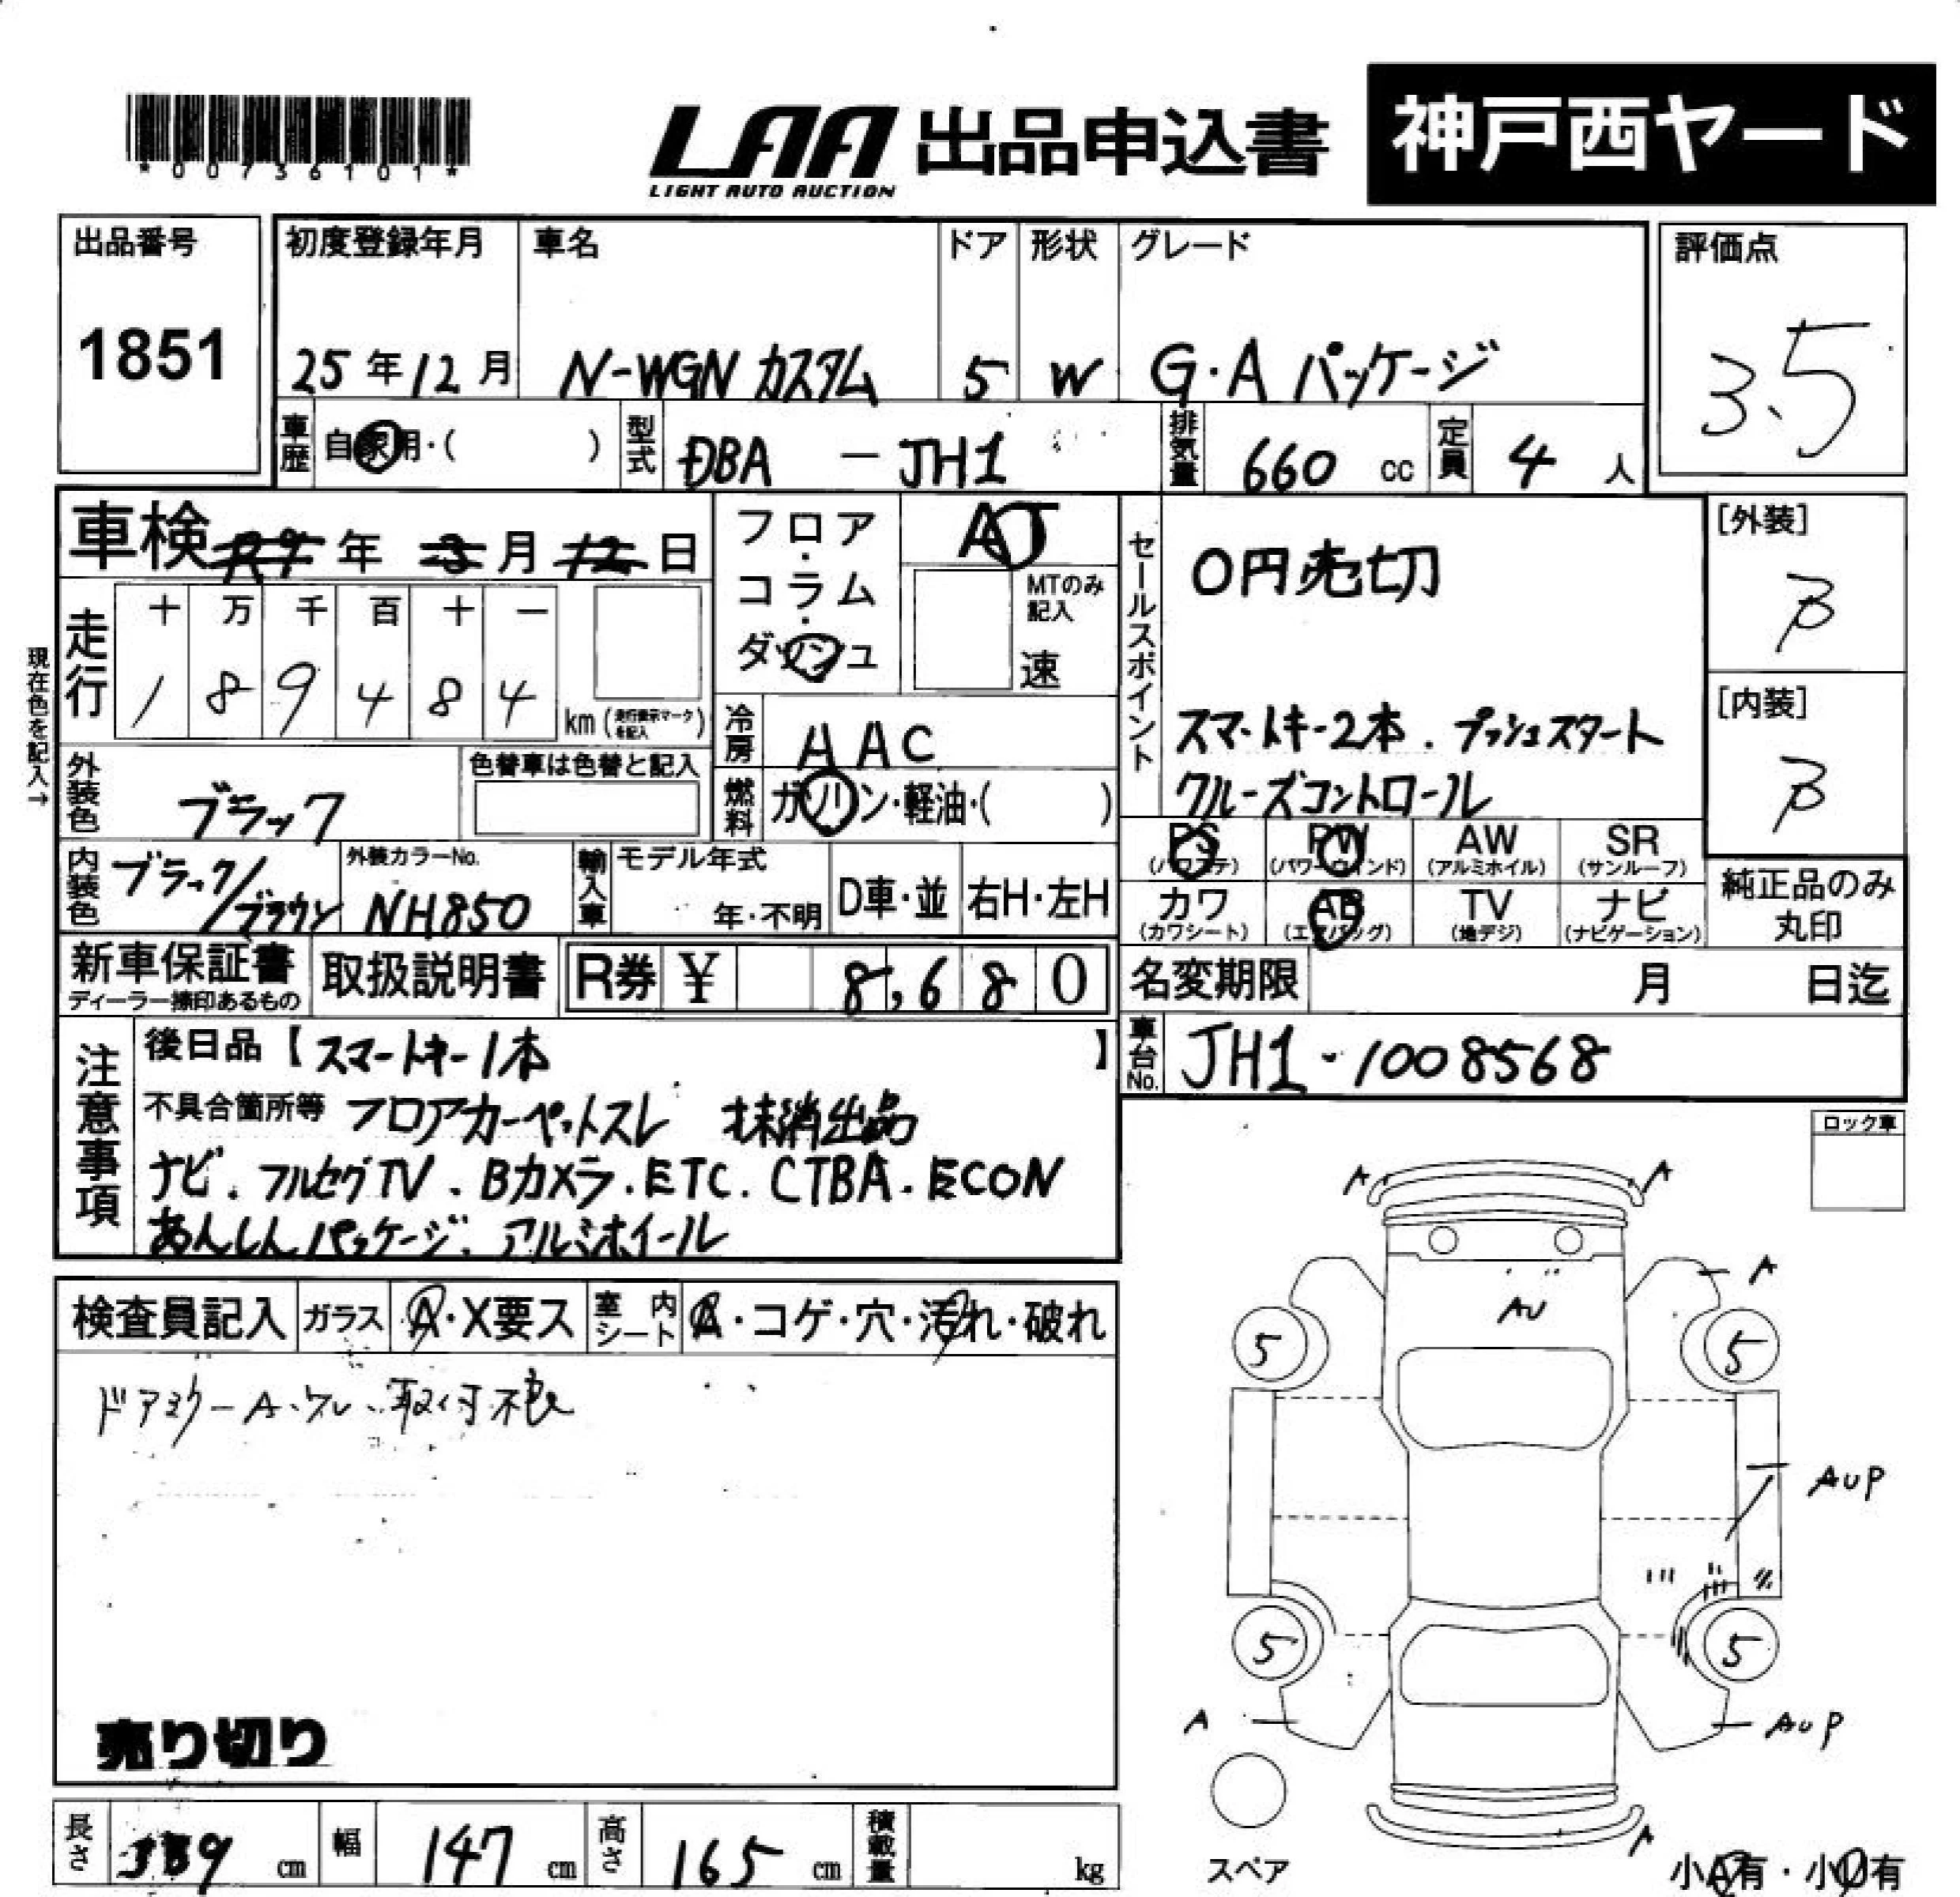 *00736101*
LAA 出品申込書 神戸西ヤード
LIGHT AUTO AUCTION
出品番号 1851
初度登録年月 25年12月
車名 N-WGN カスタム
ドア 5
形状 W
グレード G・A パッケージ
評価点 3.5
車歴 自家用・( )
型式 DBA - JH1
排気量 660 cc
定員 4 人
車検 R7年 3月 12日
フロア・コラム・ダッシュ
AT
MTのみ記入 速
現在色を記入→
走行 十 万 千 百 十 一
1 8 9 4 8 4 km (走行表示マークを記入)
冷房 AAC
燃料 ガソリン・軽油・( )
外装色 ブラック
色替車は色替と記入
内装色 ブラック/ブラウン
外装カラーNo. NH850
輸入車 モデル年式 年・不明
D車・並 右H・左H
セールスポイント 0円売切
スマートキー2本.プッシュスタート
クルーズコントロール
[外装] B
[内装] B
PS (パワステ) PW (パワーウインド) AW (アルミホイル) SR (サンルーフ)
カワ (カワシート) AB (エアバッグ) TV (地デジ) ナビ (ナビゲーション)
純正品のみ丸印
新車保証書 ディーラー捺印あるもの
取扱説明書
R券 ¥ 8,680
名変期限 月 日迄
車台No. JH1-1008568
注意事項 後日品【スマートキー1本 】
不具合箇所等 フロアカーペットスレ 抹消出品
ナビ.フルセグTV.Bカメラ.ETC.CTBA.ECON
あんしんパッケージ.アルミホイール
ロック車
検査員記入 ガラス A・X要ス 室内シート A・コゲ・穴・汚れ・破れ
ドアミラーA.ワレ.取付不良
売り切り
A A
A
AU
5 5
AUP
5 5
A AUP
A
スペア
小A有・小U有
長さ 339 cm 幅 147 cm 高さ 165 cm 積載量 kg